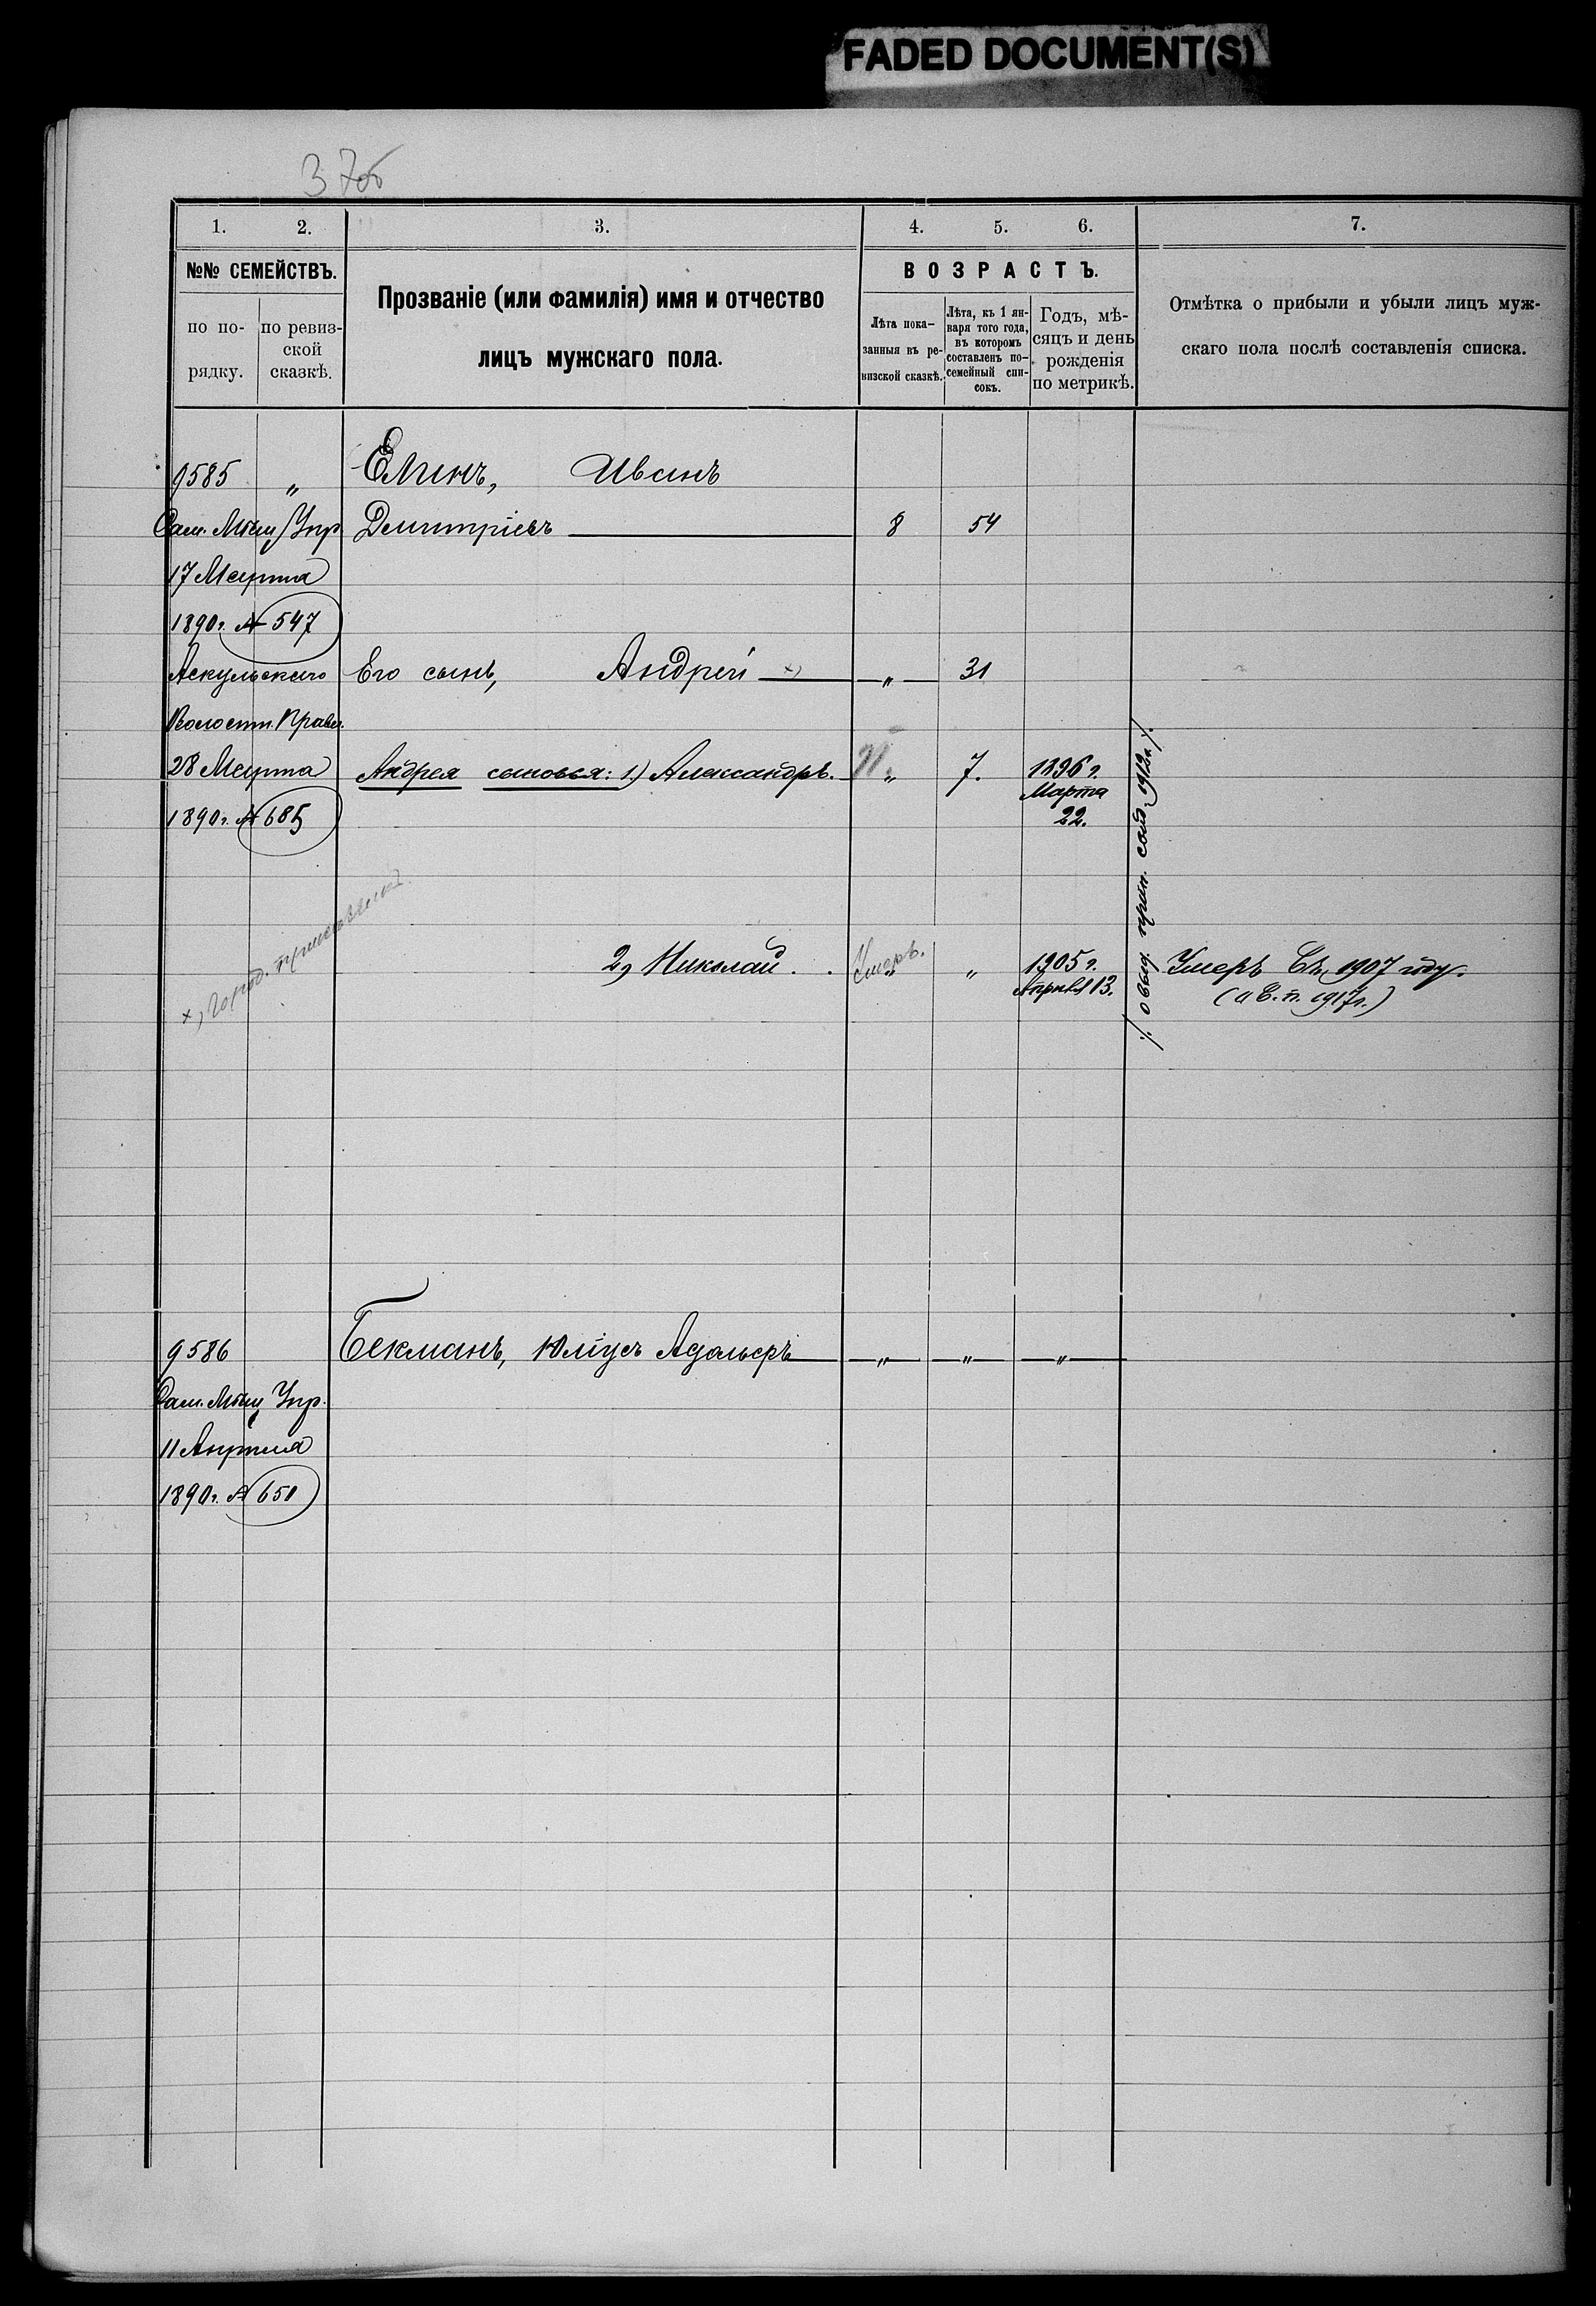 FADED DOCUMENT(S)
1. 2. 3. 4. 5. 6. 7.
№№ СЕМЕЙСТВЪ.
по по-
рядку.
по ревиз-
ской
сказкѣ.
Прозваніе (или фамилія) имя и отчество
лицъ мужскаго пола.
ВОЗРАСТЪ.
Лѣта пока-
занныя въ ре-
визской сказкѣ.
Лѣта, къ 1 ян-
варя того года,
въ которомъ
составленъ по-
семейный спи-
сокъ.
Годъ, мѣ-
сяцъ и день
рожденія
по метрикѣ.
Отмѣтка о прибыли и убыли лицъ муж-
скаго пола послѣ составленія списка.
9585 „ Елинъ, Иванъ
Сам. Мѣщ. Упр. Дмитріевъ 8 54
17 Марта
1890 г. № 547
Его сынъ, Андрей х) „ 31
Волостн. Правл.
28 Марта Андрея сыновья: 1) Александръ. „ 7. 1896 г.
Марта
22.
1890 г. № 685
2) Николай . . Умеръ. „ „ 1905 г.
Апрѣля 13.
Умеръ въ 1907 году.
9586 Бекманъ, Юліусъ „ „ „
Сам. Мѣщ. Упр.
11 Апрѣля
1890 г. № 650